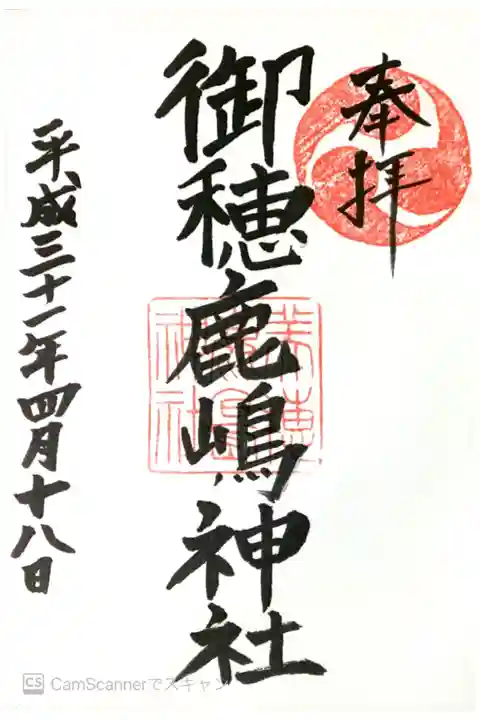 奉拝
御穂鹿嶋神社
平成三十一年四月十八日
CS CamScannerでスキャン